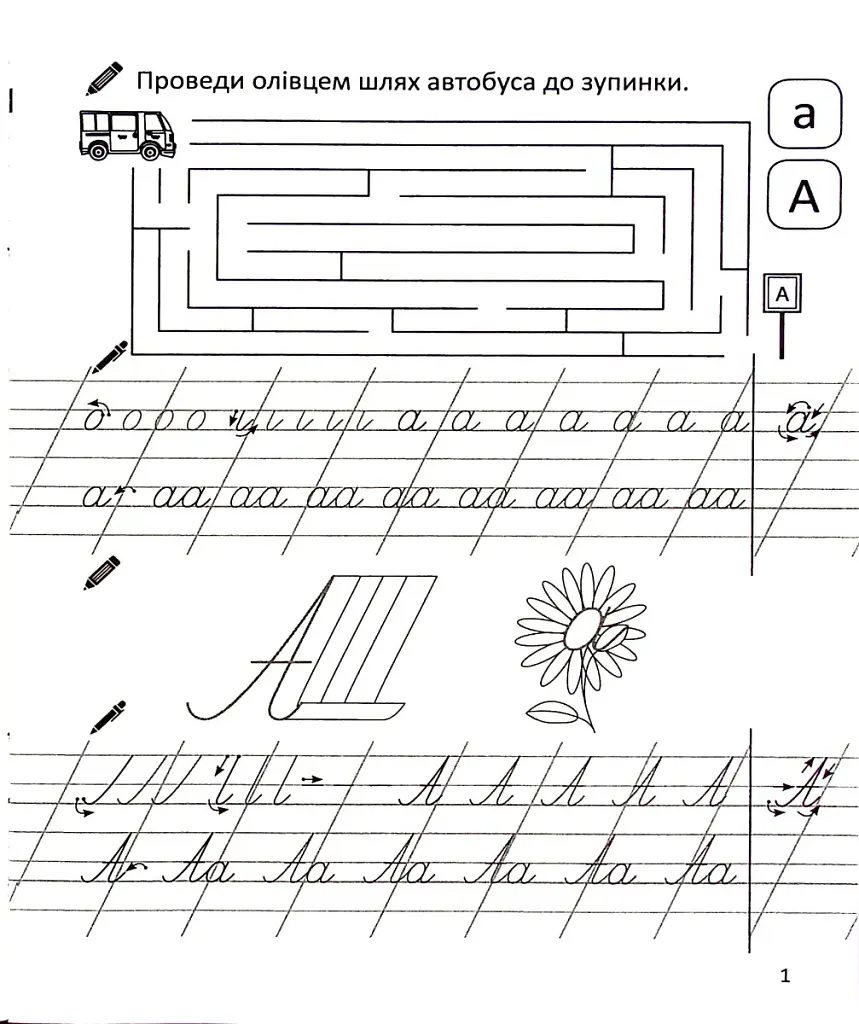 Проведи олівцем шлях автобуса до зупинки.
а
А
А
о о о о и и и и и а а а а а а а а
а аа аа аа аа аа аа аа аа
А
А А А А А А
А Аа Аа Аа Аа Аа Аа Аа
1